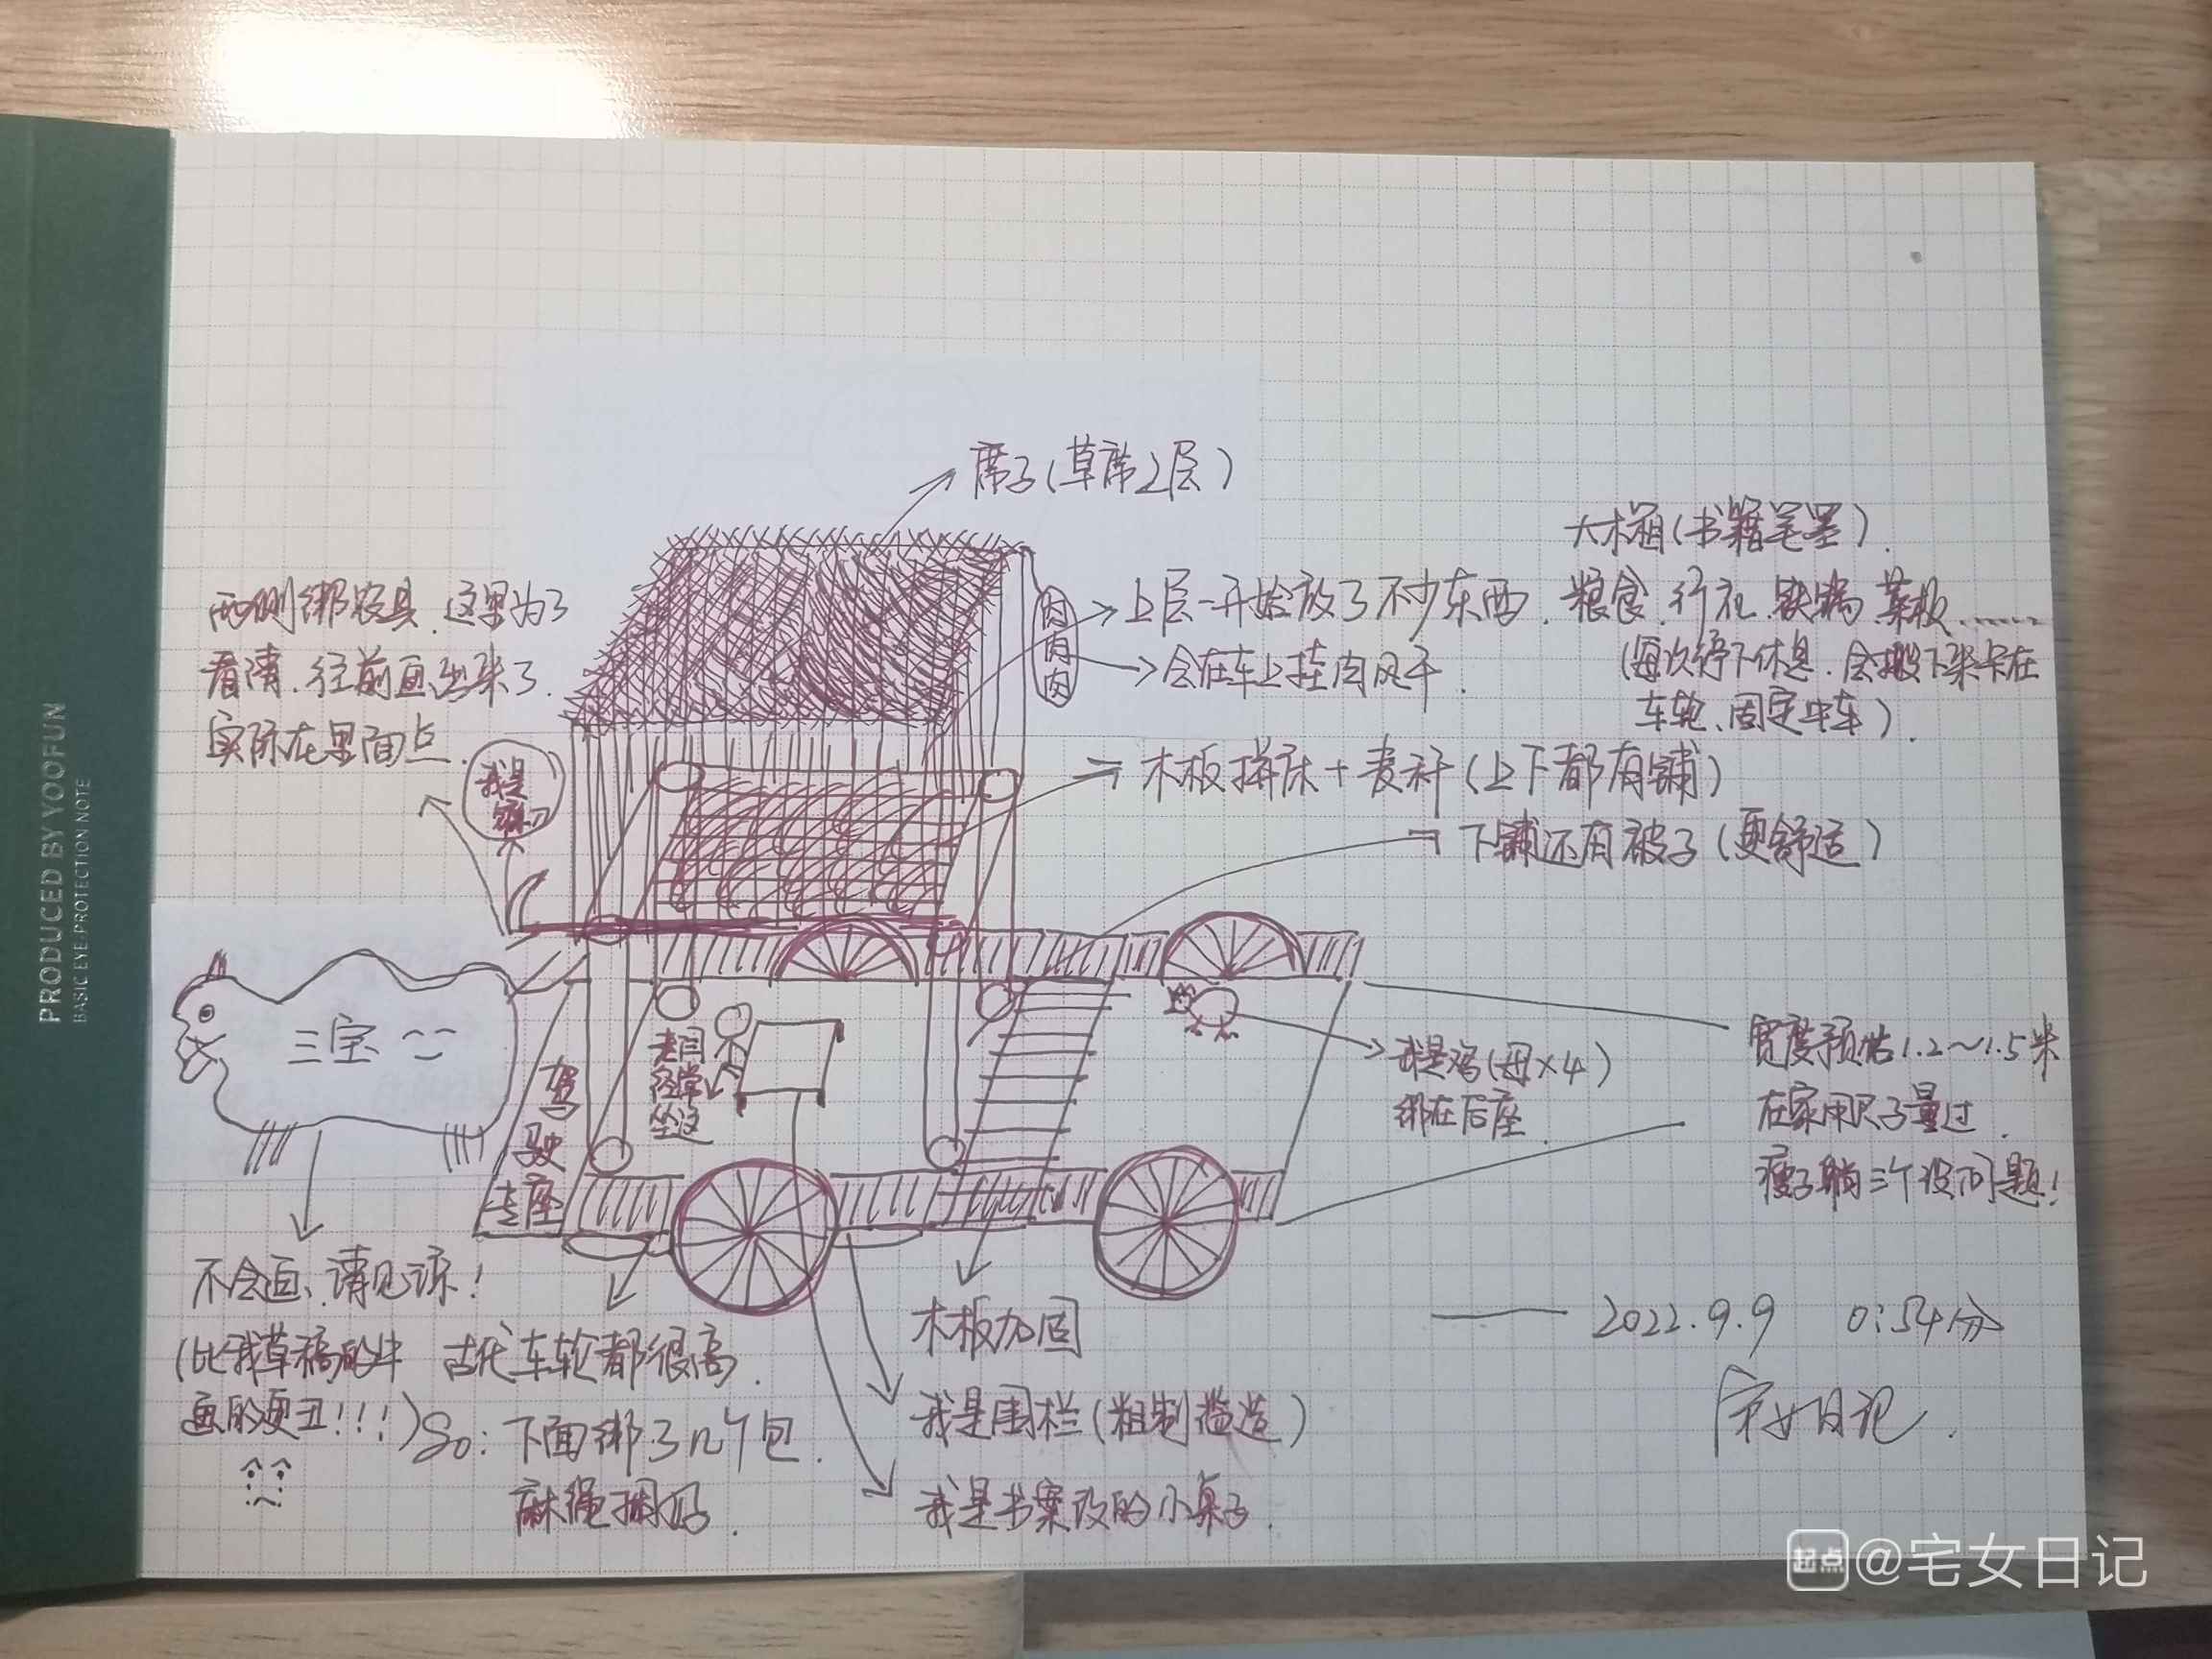 PRODUCED BY YOOFUN
BASIC EYE PROTECTION NOTE
席子(草席2层)
大木箱(书籍笔墨).
上层一开始放了不少东西.粮食.行礼.铁锅.菜板......
(每次停下休息.会搬下来卡在
车轮、固定牛车).
肉肉肉
会在车上挂肉风干.
两侧绑农具.这里为了
看清.往前画出来了.
实际在里面点.
我是
木板拼床+麦秆(上下都有铺)
下铺还有被子(更舒适)
三宝
驾驶专座
经常坐这
我是鸡(母×4)
绑在后座.
宽度预估1.2~1.5米
在家用尺子量过.
瘦子躺三个没问题!
不会画、请见谅!
(比我草稿的牛
画的更丑!!!)
古代车轮都很高.
So:下面绑了几个包.
麻绳捆好.
木板加固
我是围栏(粗制滥造)
我是书案改的小桌子.
——2022.9.9 0:54分
宅女日记.
起点@宅女日记